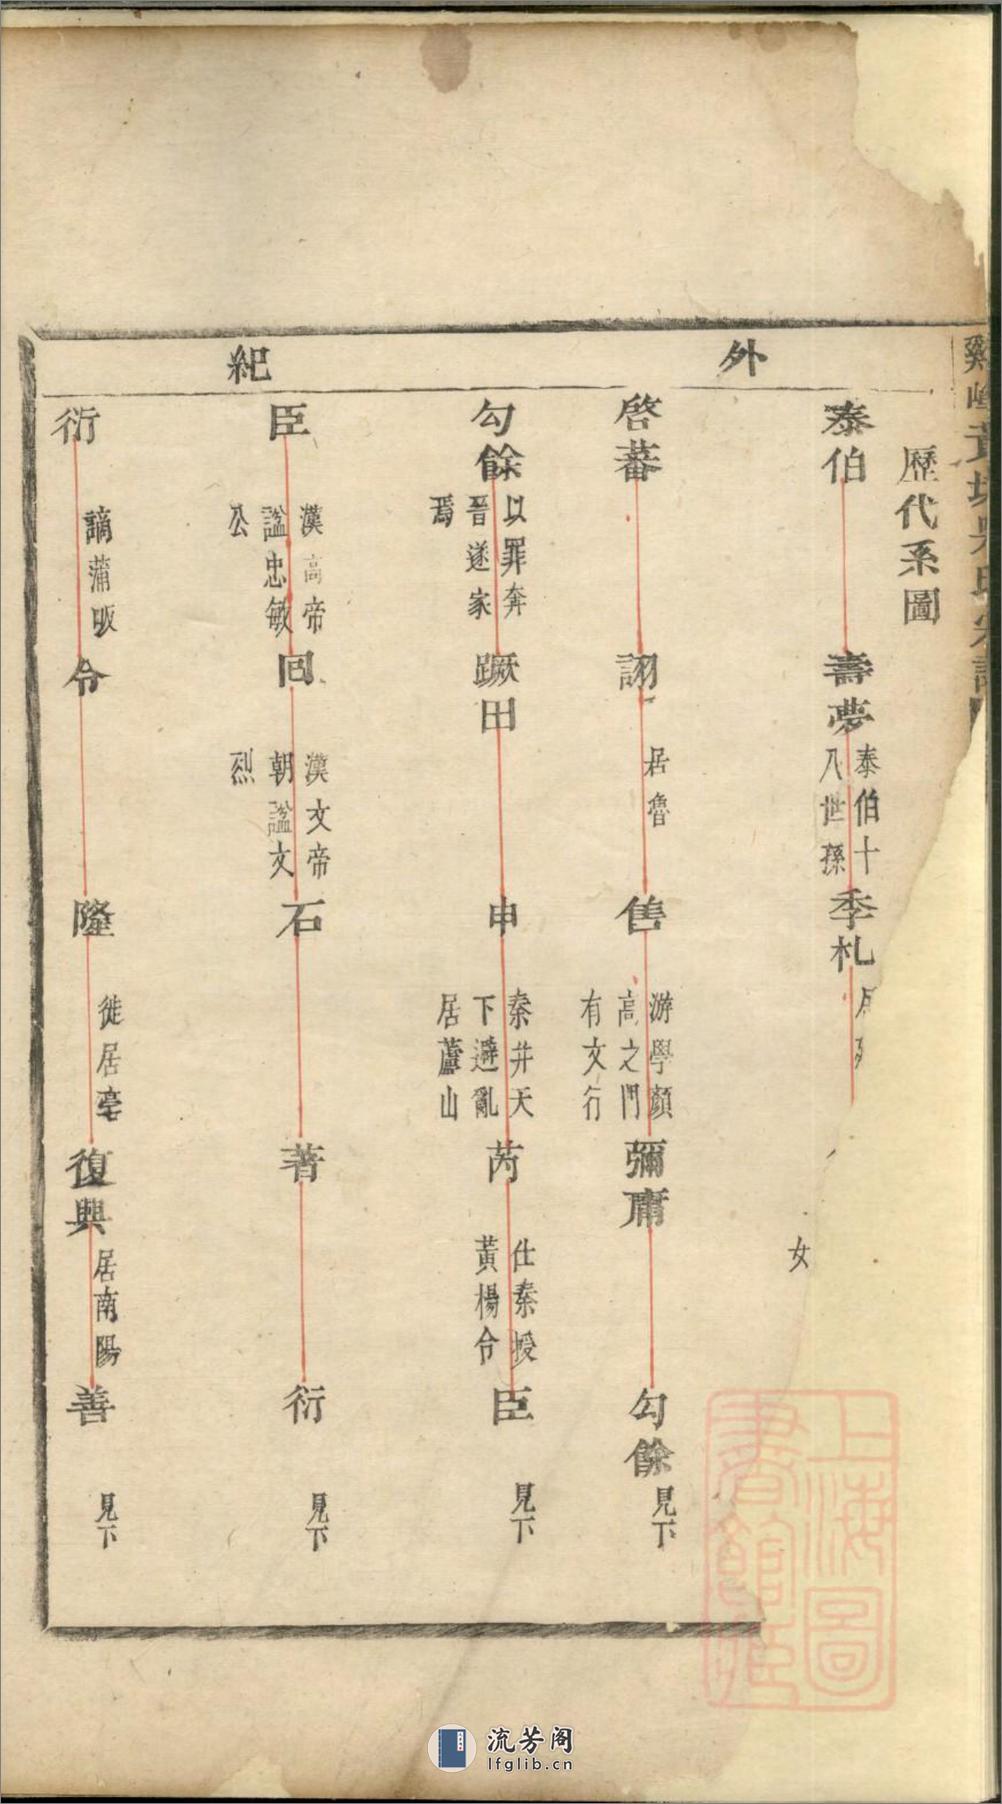 外紀
歷代系圖
泰伯
壽夢
泰伯十
八世孫
季札
女
啓蕃
詡
居魯
售
游學顏
高之門
有文行
彌庸
勾餘
見下
勾餘
以罪奔
晉遂家
焉
蹶田
申
秦并天
下避亂
居蘆山
芮
仕秦授
黃楊令
臣
見下
臣
漢高帝
諡忠敏
公
回
漢文帝
朝諡文
烈
石
著
衍
見下
衍
謫蒲坂
令
隆
徙居亳
復興
居南陽
善
見下
上海圖
書館藏
流芳阁
lfglib.cn